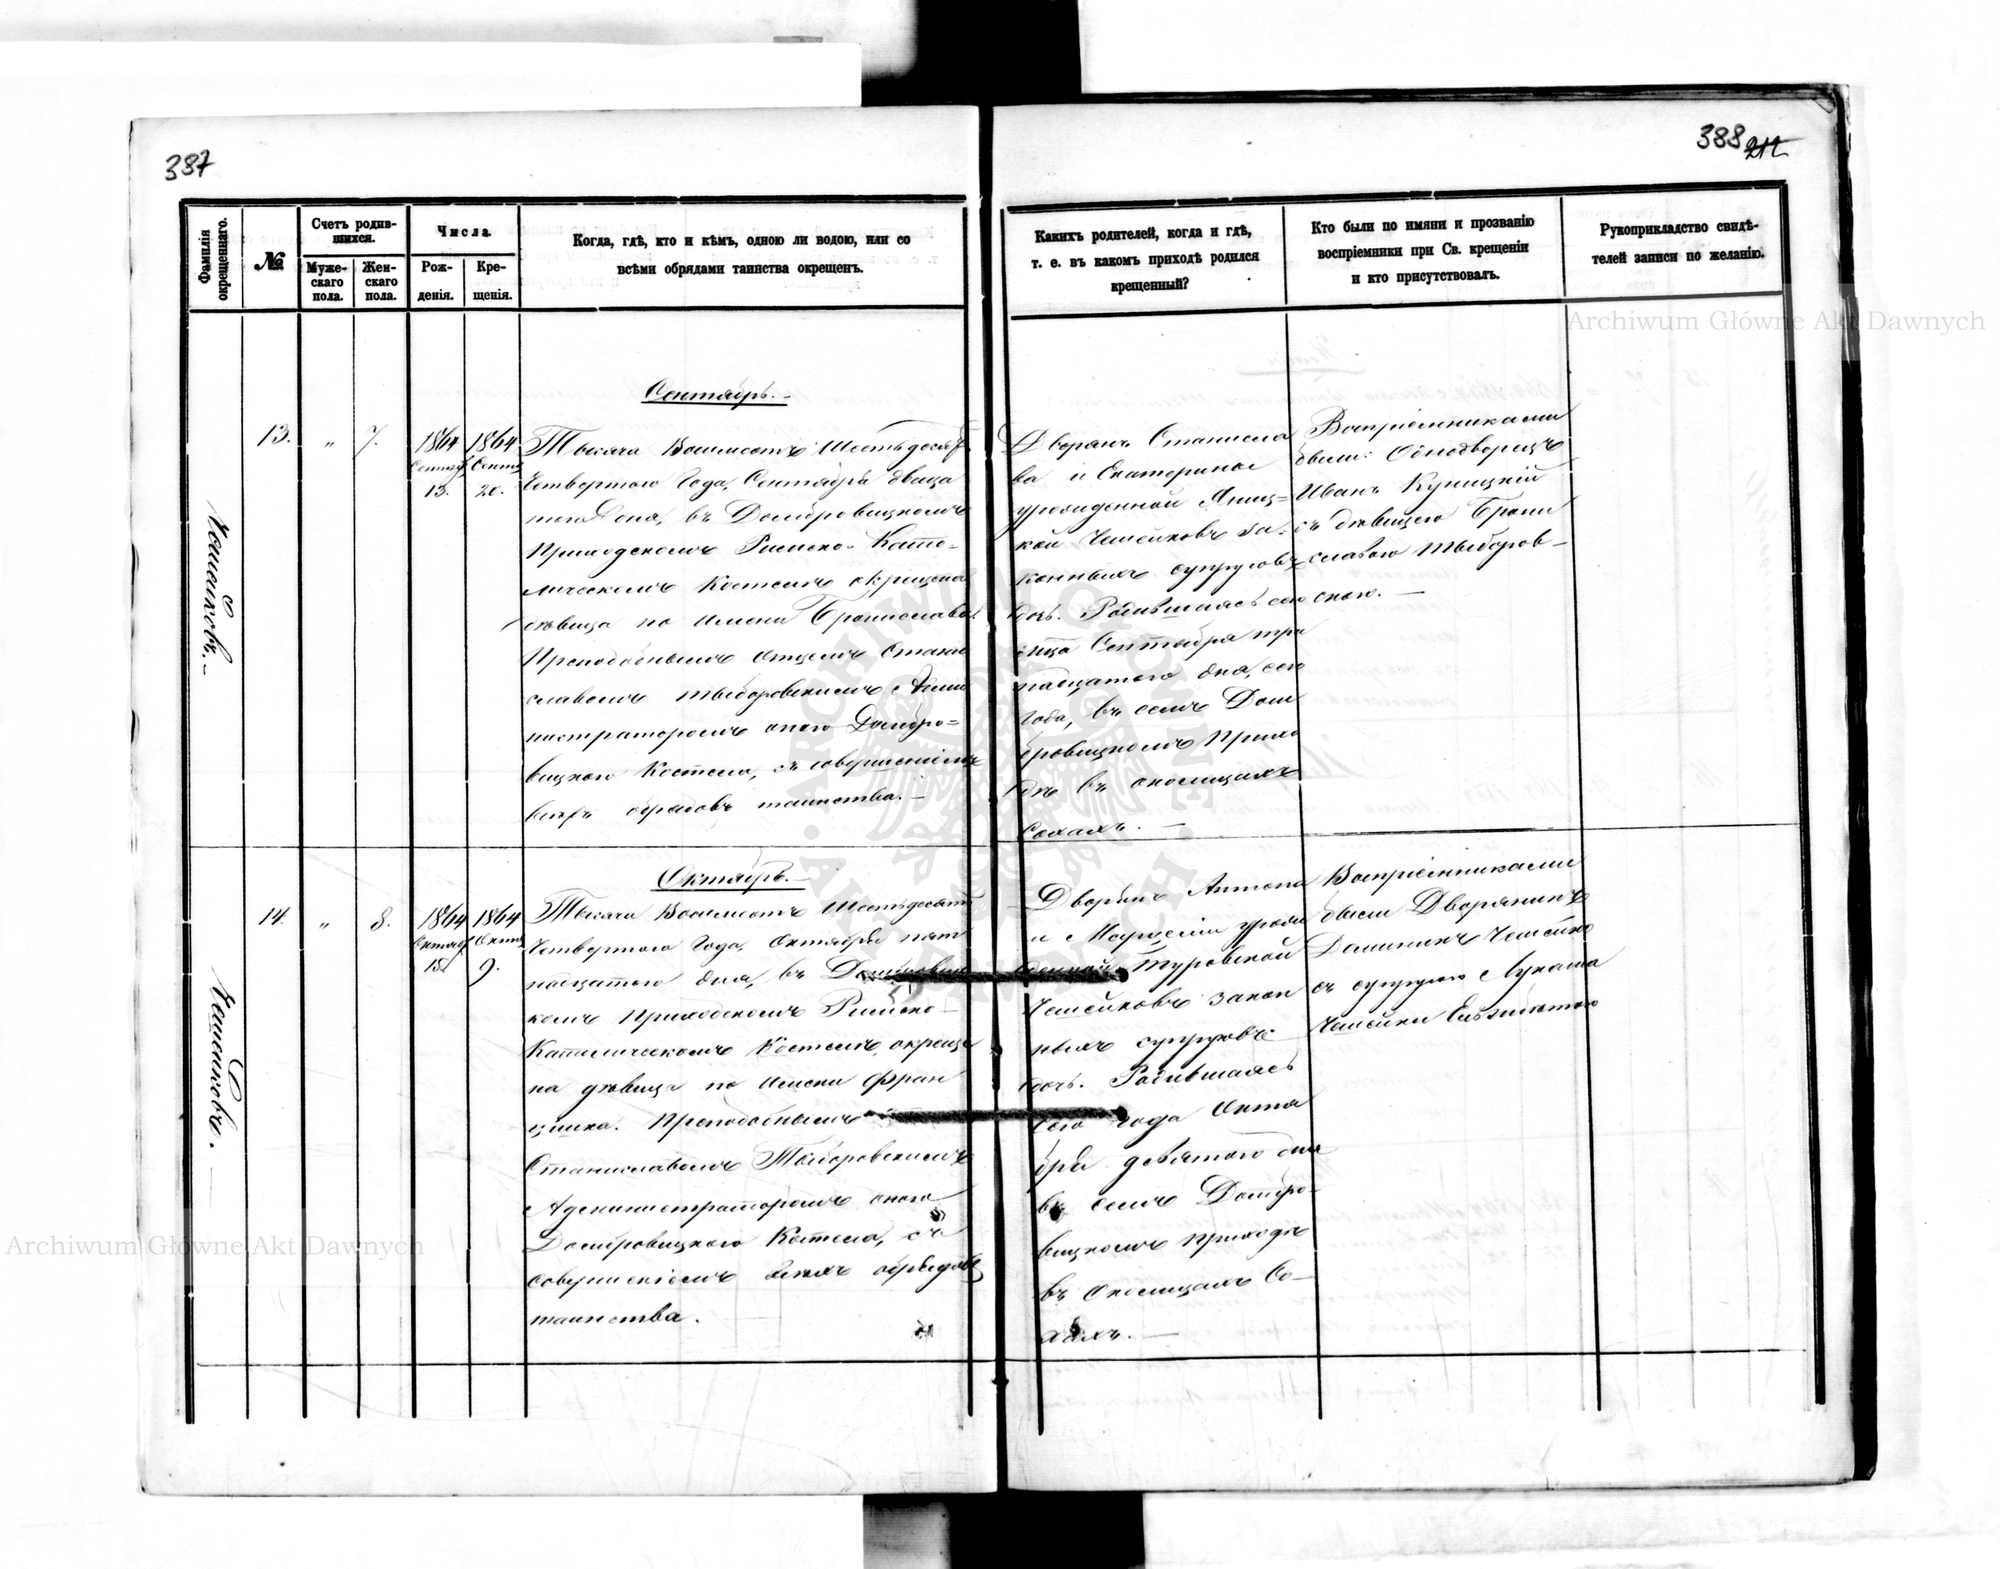 387
388 212
Фамилія окрещеннаго.
№
Счетъ родив-
шихся.
Муже-
скаго
пола.
Жен-
скаго
пола.
Числа.
Рож-
денія.
Кре-
щенія.
Когда, гдѣ, кто и кѣмъ, одною ли водою, или со
всѣми обрядами таинства окрещенъ.
Какихъ родителей, когда и гдѣ,
т. е. въ какомъ приходѣ родился
крещенный?
Кто были по имяни и прозванію
воспріемники при Св. крещеніи
и кто присутствовалъ.
Рукоприкладство свидѣ-
телей записи по желанію.
Archiwum Główne Akt Dawnych
Чомейковъ.
13.
„
7.
1864
Сентяб.
13.
1864
Сентя.
20.
Сентябрь.
Тысяча Восимсотъ Шестьдесятъ
Четвертого Года, Сентября двяца
того Дня, въ Домбровицкомъ
Приходскомъ Римско-Като-
лическомъ Костелѣ окрещена
дѣвица по имени Брониславa.
Преподобнымъ отцемъ Стани
славомъ Тыборовскимъ Адми
нистраторомъ оного Домбро-
вицкого Костела, съ совершеніемъ
всѣхъ обрядовъ таинства.
Дворянъ Станисла
ва и Екатерины
урожденной Яниц-
кой Чомейковъ за-
конныхъ супруговъ
дочь. Родившаясь сего
мѣсяца Сентября три
надцатого дня, сего
Года, въ семъ Дом
бровицкомъ Прихо
дѣ въ околицахъ
Сохахъ.
Воспріемниками
были: Однодворецъ
Иванъ Куницкій
съ дѣвицею Брони
славою Тыборов-
скою.
Чомейковъ.
14.
„
8.
1864
Октяб.
15.
1864
Октя.
9.
Октябрь.
Тысяча Восимсотъ Шестьдесятъ
Четвертого Года, Октября пят
надцатого дня, въ Домбровиц
комъ Приходскомъ Римско-
Католическомъ Костелѣ, окреще
на дѣвица по имени Фран
цишка. Преподобнымъ
Станиславомъ Тыборовскимъ
Администраторомъ оного
Домбровицкого Костела, съ
совершеніемъ всѣхъ обрядовъ
таинства.
Дворянъ Антона
и Марціи урож
денной Туровской
Чомейковъ закон
ныхъ супруговъ
дочь. Родившаясь
сего года Октя
бря девятого дня
въ семъ Домбро-
вицкомъ приходѣ
въ Околицахъ Со-
хахъ.
Воспріемниками
были Дворянинъ
Доминикъ Чомейко
съ супругою Лукаша
Чомейки Ельжбетою
Archiwum Główne Akt Dawnych
ARCHIWUM GŁÓWNE AKT DAWNYCH